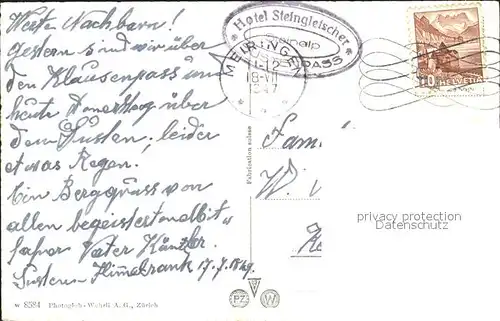 Werte Nachbarn!
Gestern sind wir über
den Klausenpass und
heute Donnerstag über
den Susten, leider
etwas Regen.
Ein Berggruss von
allen begeisterten Mit„
fahrer Vater Känzler.
Susten-Himelrank 17.7.1947.
w 8584 Photoglob-Wehrli A.G., Zürich
* Hotel Steingletscher *
Steinalp
PASS
MEIRINGEN
11-12
18.VII
1947
10 HELVETIA
Fabrication suisse
Fam
W.
privacy protection
Datenschutz
PZ W